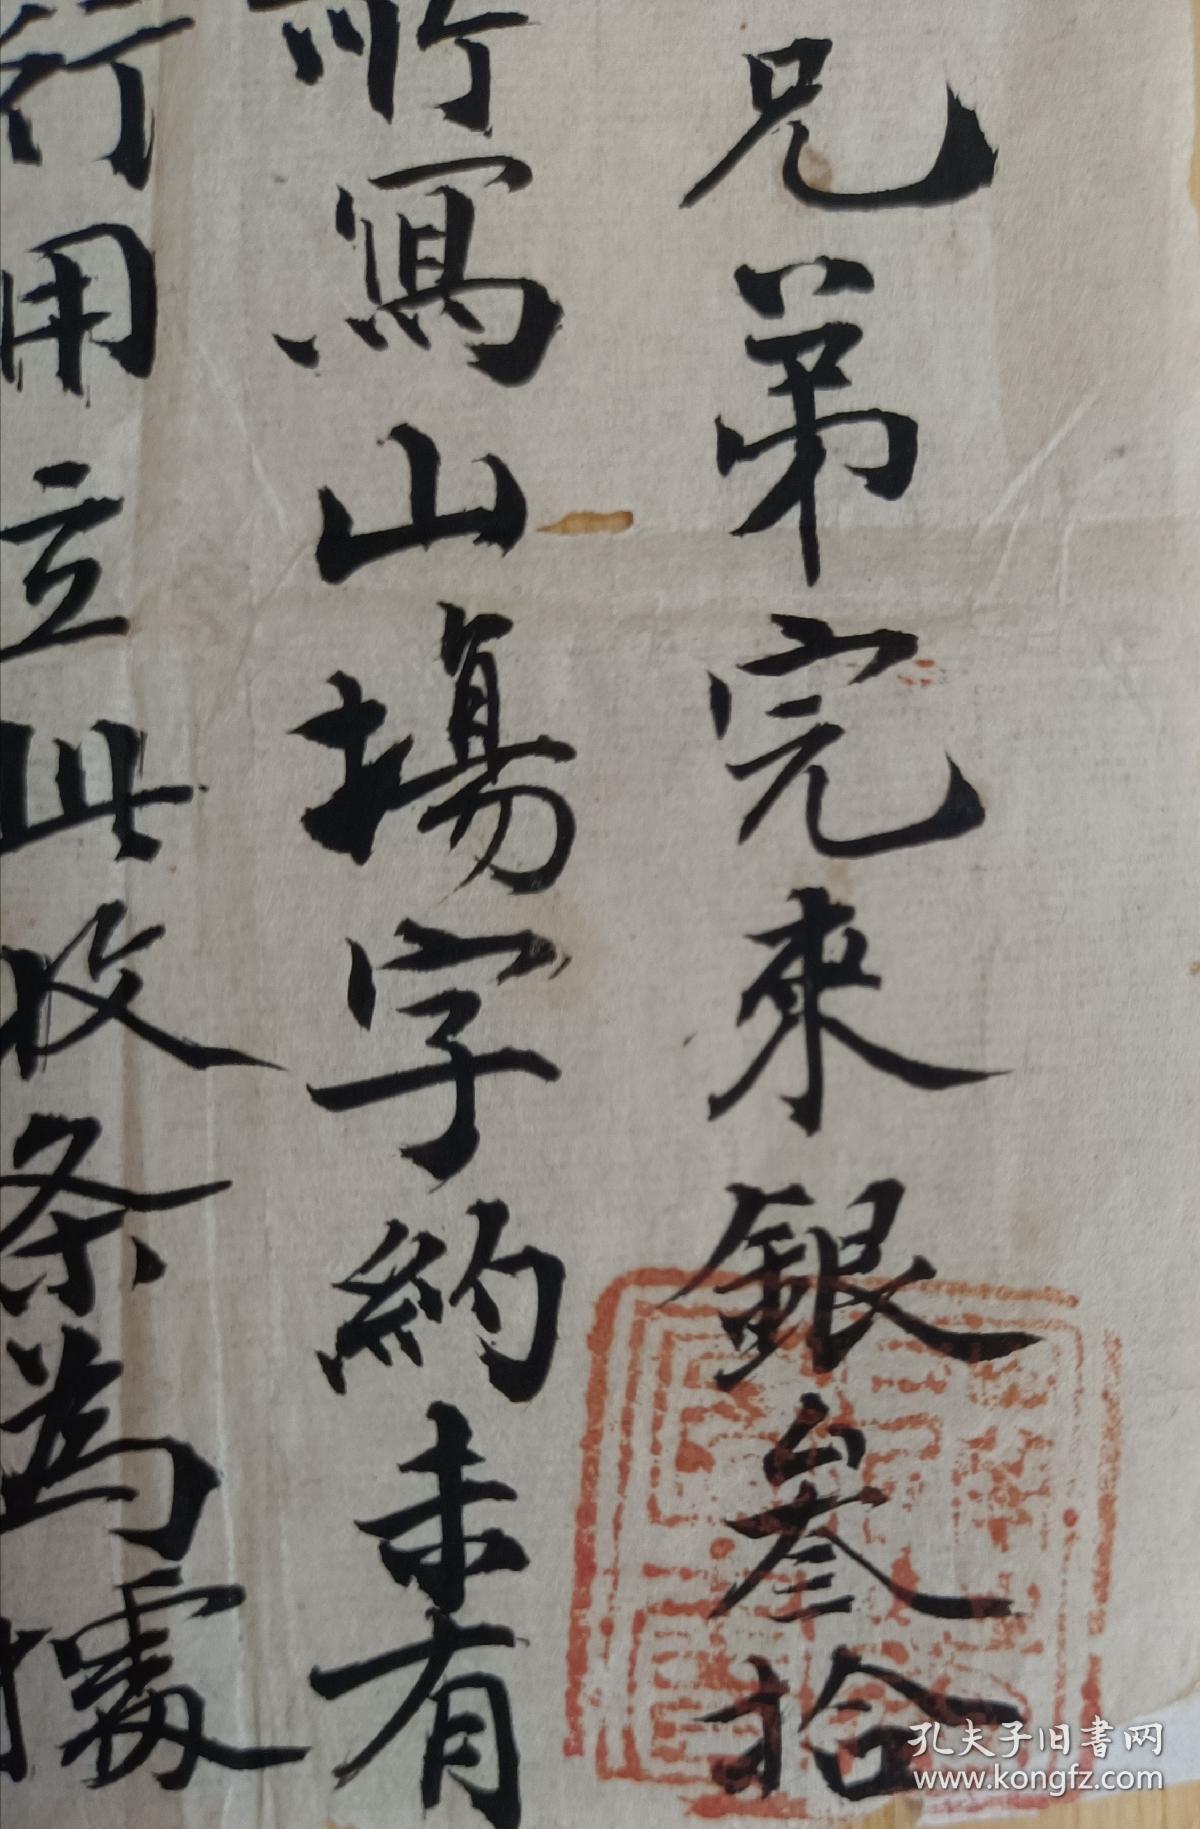 兄弟完來銀叁拾
所寫山塲字約未有
行用立此收条為據
孔夫子旧書网
www.kongfz.com